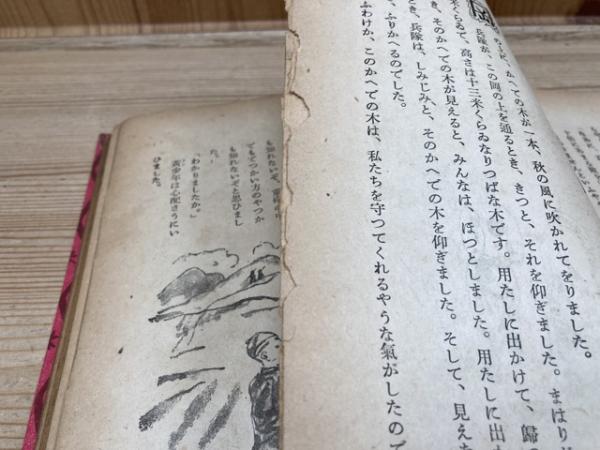 かへでの木が一本、秋の風に吹かれてをりました。
兵隊が、この岡の上を通るとき、きつと、それを仰ぎました。まはりが
米くらゐで、高さは十三米くらゐなりつぱな木です。用たしに出かけて、歸
き、そのかへでの木が見えると、みんなは、ほつとしました。用たしに出か
き、兵隊は、しみじみと、そのかへでの木を仰ぎました。そして、見えた
、ふりかへるのでした。
ふわけか、このかへでの木は、私たちを守つてくれるやうな氣がしたので
も知れないぞ、
でもでつかい方のやつか
も知れないぞと思ひまし
た。
「わかりましたか。」
黄少年は心配さうにい
ひました。